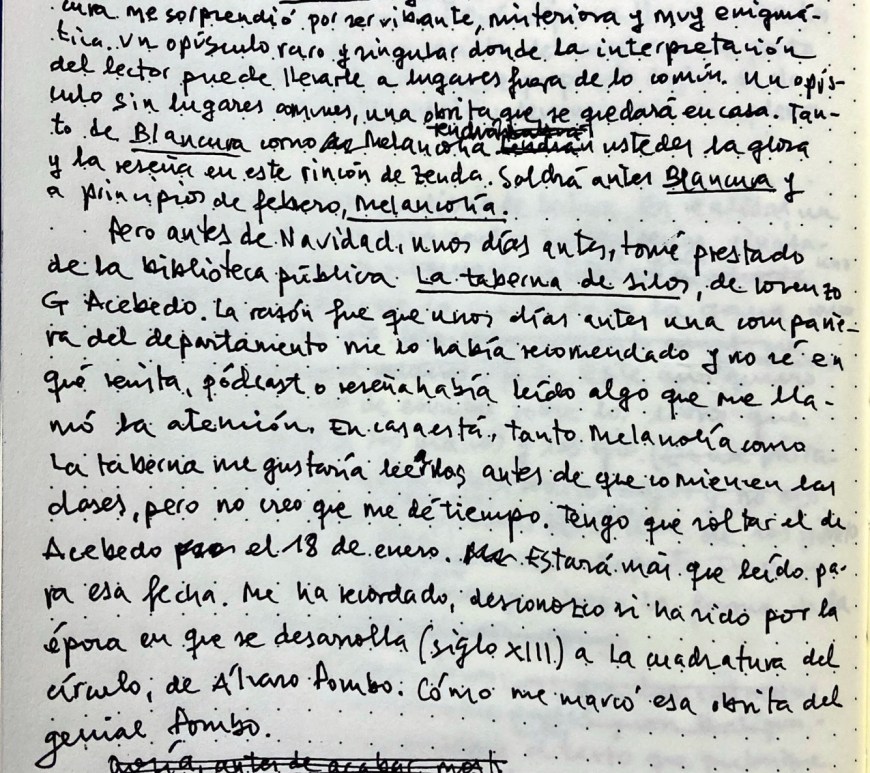 cura me sorprendió por ser vibante, misteriosa y muy enigmá-
tica. Un opúsculo raro y singular donde la interpretación
del lector puede llevarle a lugares fuera de lo común. Un opús-
culo sin lugares comunes, una obrita que se quedará en casa. Tan-
to de Blancura como Melancolía tendrán ustedes la glosa
y la reseña en este rincón de Zenda. Saldrá antes Blancura y
a principios de febrero, Melancolía.
Pero antes de Navidad, unos días antes, tomé prestado
de la biblioteca pública La taberna de Silos, de Lorenzo
G Acebedo. La razón fue que unos días antes una compañe-
ra del departamento me lo había recomendado y no sé en
qué revista, pódcast o reseña había leído algo que me lla-
mó la atención. En casa está, tanto Melancolía como
La taberna me gustaría leerlos antes de que comiencen las
clases, pero no creo que me dé tiempo. Tengo que soltar el de
Acebedo el 18 de enero. Estará más que leído pa-
ra esa fecha. Me ha recordado, desconozco si ha sido por la
época en que se desarrolla (siglo XIII) a La cuadratura del
círculo, de Álvaro Pombo. Cómo me marcó esa obrita del
genial Pombo.
antes de acabar